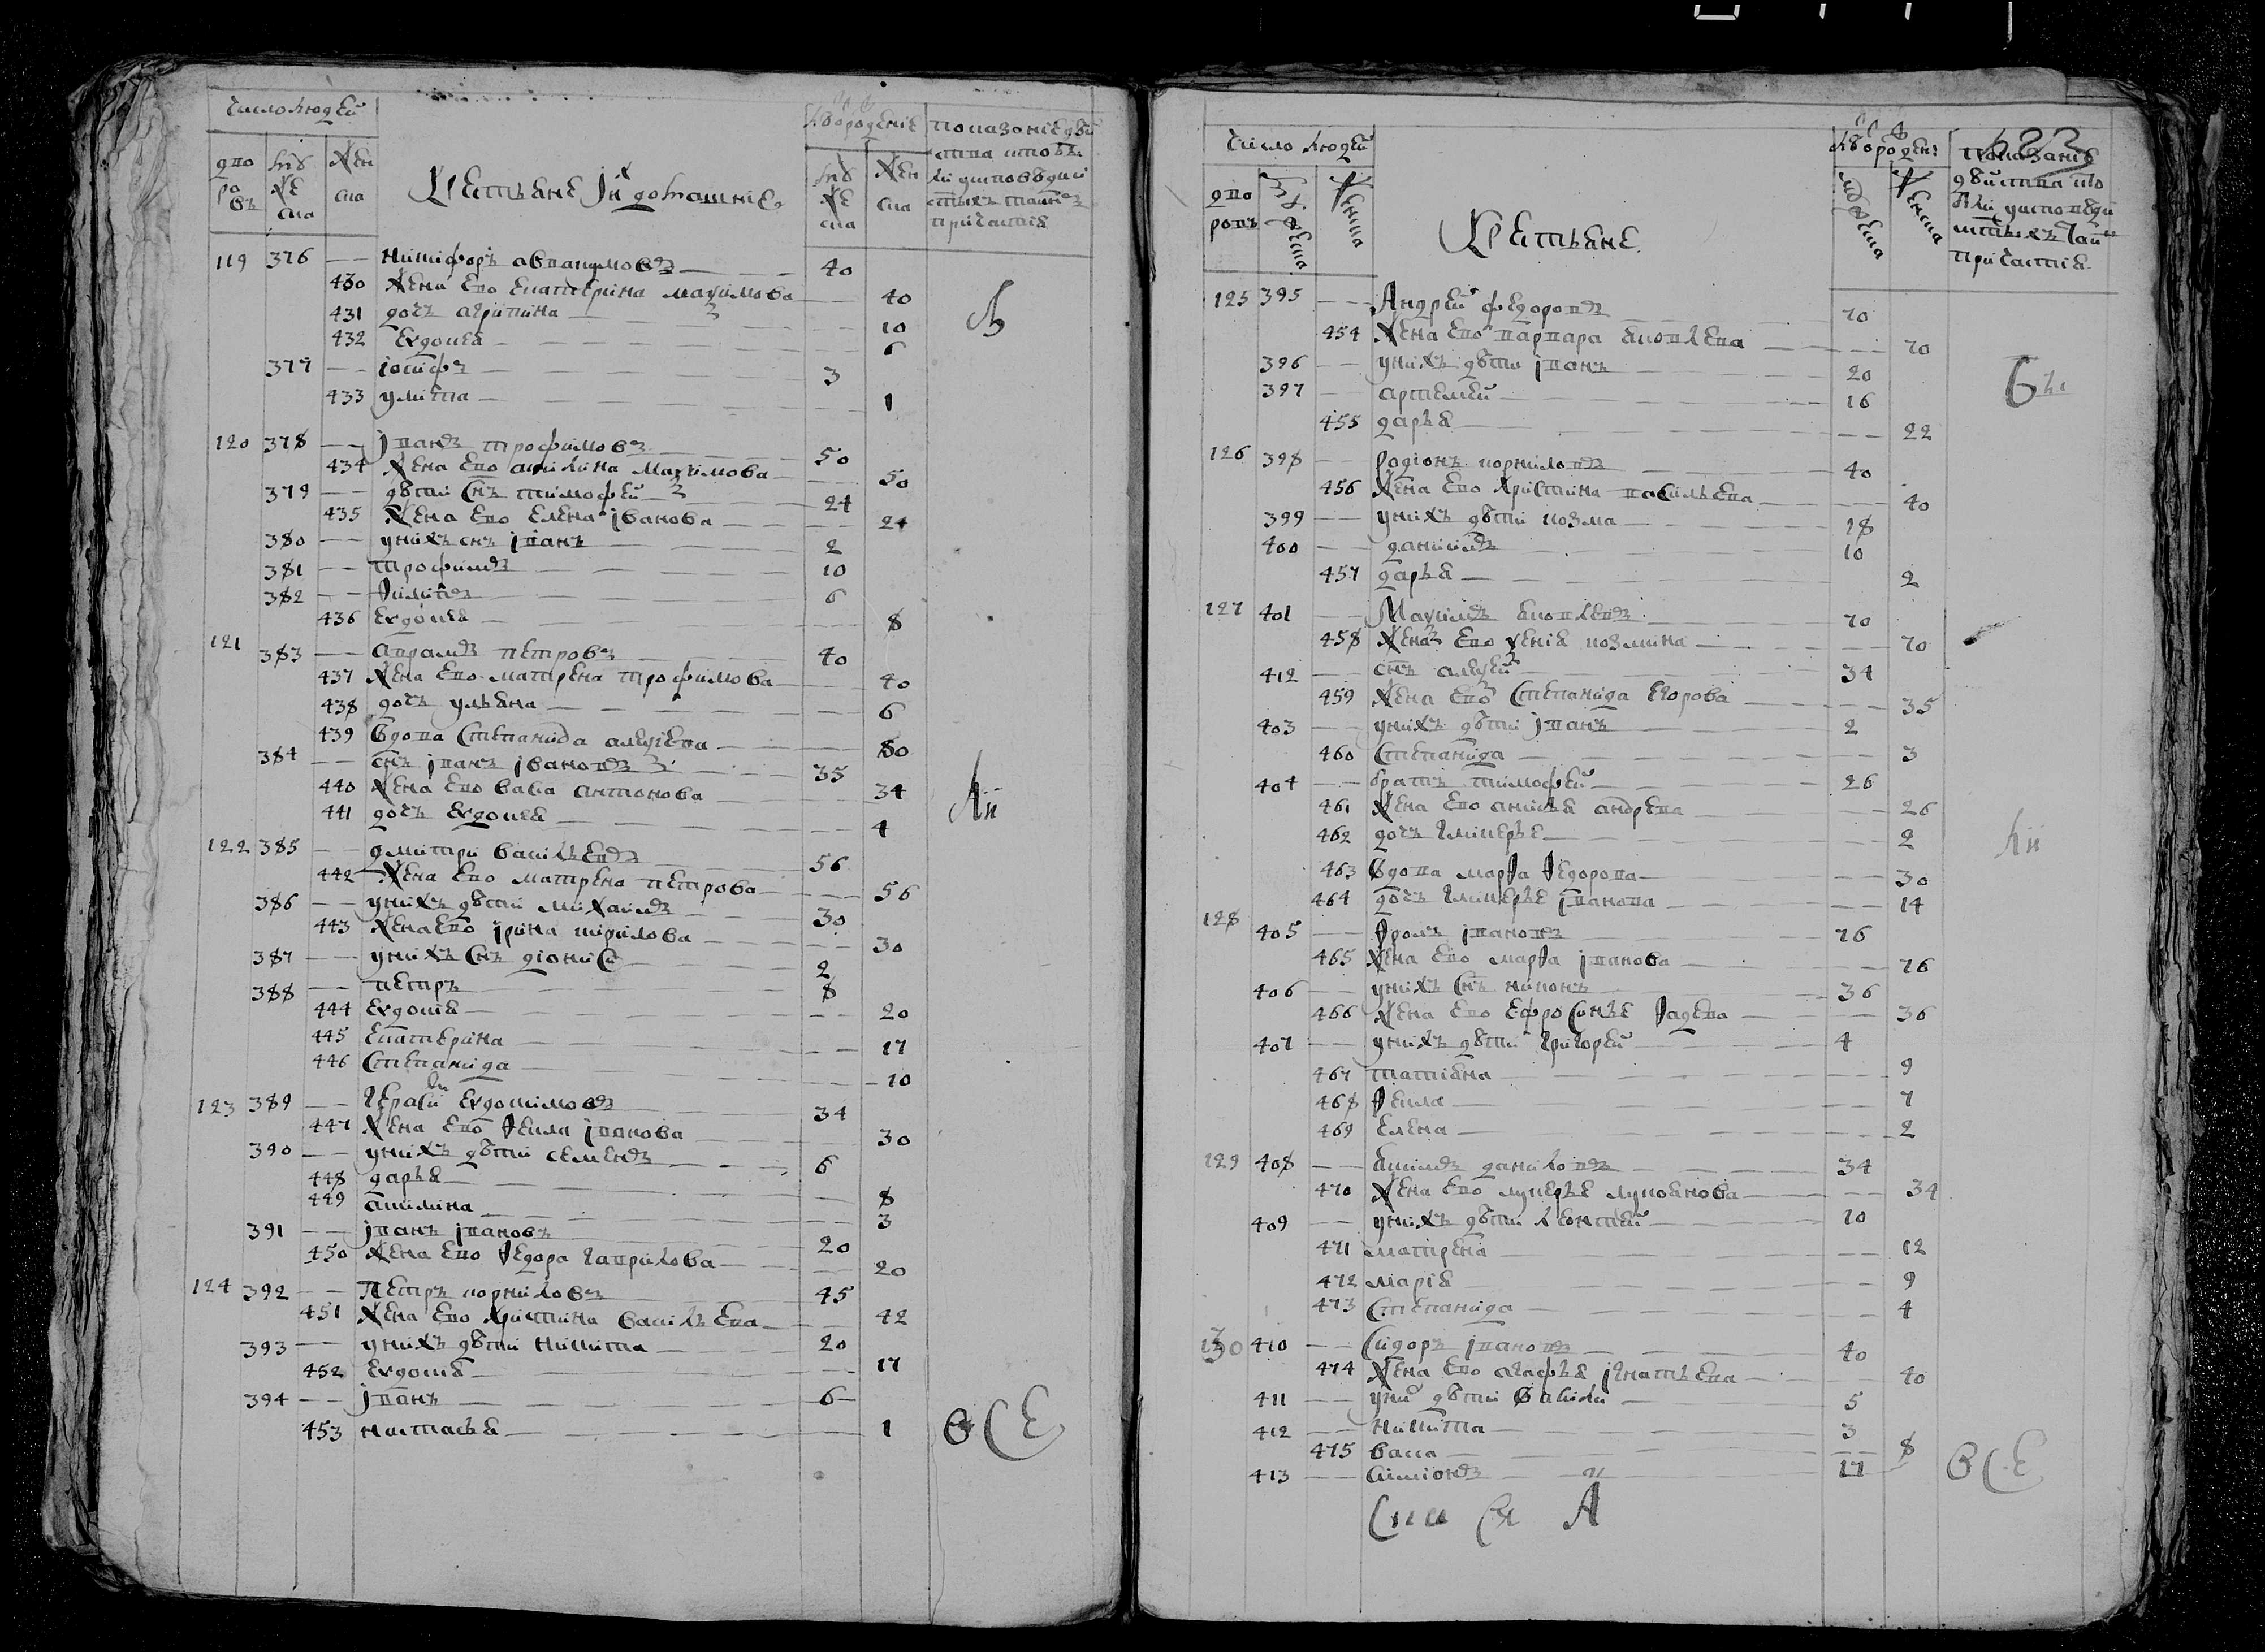 Число людей
дворовъ
мужеска
женска
Крестьяне и ихъ домашніе
Лѣто рожденіе
мужеска
женска
показаніе дѣйства кто былъ у исповѣди и святыхъ таинъ причастія
119 376 Никифоръ Авванумовъ 40
430 Жена ево Екатерина Маѯимова 40
431 дочь Агрипина 10
432 Евдокея 6
377 іосифъ 3
433 улита 1
120 378 іванъ трофимовъ 50
434 Жена ево акилина Маѯимова 50
379 дѣти снъ тимофей 24
435 Жена ево Елена іванова 24
380 у нихъ снъ іванъ 2
381 трофимъ 10
382 Ѳилипъ 6
436 Евдокея 8
121 383 Аврамъ петровъ 40
437 Жена ево матрена трофимова 40
438 дочь ульяна 6
439 вдова Степанида алеѯіева 80
384 снъ іванъ івановъ 35
440 Жена ево васа антонова 34
441 дочь Евдокея 4
122 385 дмитри васильевъ 56
442 Жена ево матрена петрова 56
386 у нихъ дѣти михаилъ 30
443 Жена ево ірина кирилова 30
387 у нихъ снъ діониси 2
388 петръ 8
444 Евдокея 20
445 Екатерина 17
446 Степанида 10
123 389 Герасимъ Евдокимовъ 34
447 Жена ево Ѳекла іванова 30
390 у нихъ дѣти семенъ 6
448 дарья 8
449 акилина 3
391 іванъ івановъ 20
450 Жена ево Ѳедора гаврилова 20
124 392 Петръ корниловъ 45
451 Жена ево Христина васильева 42
393 у нихъ дѣти никита 20
452 Евдокея 17
394 іванъ 6
453 настасья 1
всѣ
Число людей
дворовъ
мужеска
женска
Крестьяне
Лѣто рожден:
мужеска
женска
показаніе дѣйства кто былъ у исповѣди и святыхъ таинъ причастія
623
125 395 Андрей федоровъ 70
454 Жена ево варвара яковлева 70
396 у нихъ дѣти іванъ 20
397 артемей 16
455 дарья 22
126 398 родіонъ корниловъ 40
456 Жена ево Христина васильева 40
399 у нихъ дѣти козма 18
400 даниилъ 10
457 дарья 2
127 401 Маѯимъ яковлевъ 70
458 Жена ево ѯеніа козмина 70
412 снъ алеѯей 34
459 Жена ево Степанида Егорова 35
403 у нихъ дѣти іванъ 2
460 Степанида 3
404 братъ тимофей 26
461 Жена ево анисья андрева 26
462 дочь гликерье 2
463 вдова марѳа Ѳедорова 30
464 дочь гликерье іванова 14
128 405 Ѳролъ івановъ 76
465 Жена ево марѳа іванова 76
406 у нихъ снъ никонъ 36
466 Жена ево Ефросинье Ѳадева 36
407 у нихъ дѣти григорей 4
467 татіяна 9
468 Ѳекла 7
469 Елена 2
129 408 якимъ даниловъ 34
470 Жена ево лукерье лукоянова 34
409 у нихъ дѣти леонтей 10
471 матрена 12
472 маріа 9
473 Степанида 4
130 410 Сидоръ івановъ 40
474 Жена ево агафья ігнатьева 40
411 у ни дѣти василей 5
412 никита 3
475 васа 8
413 симіонъ 17
всѣ